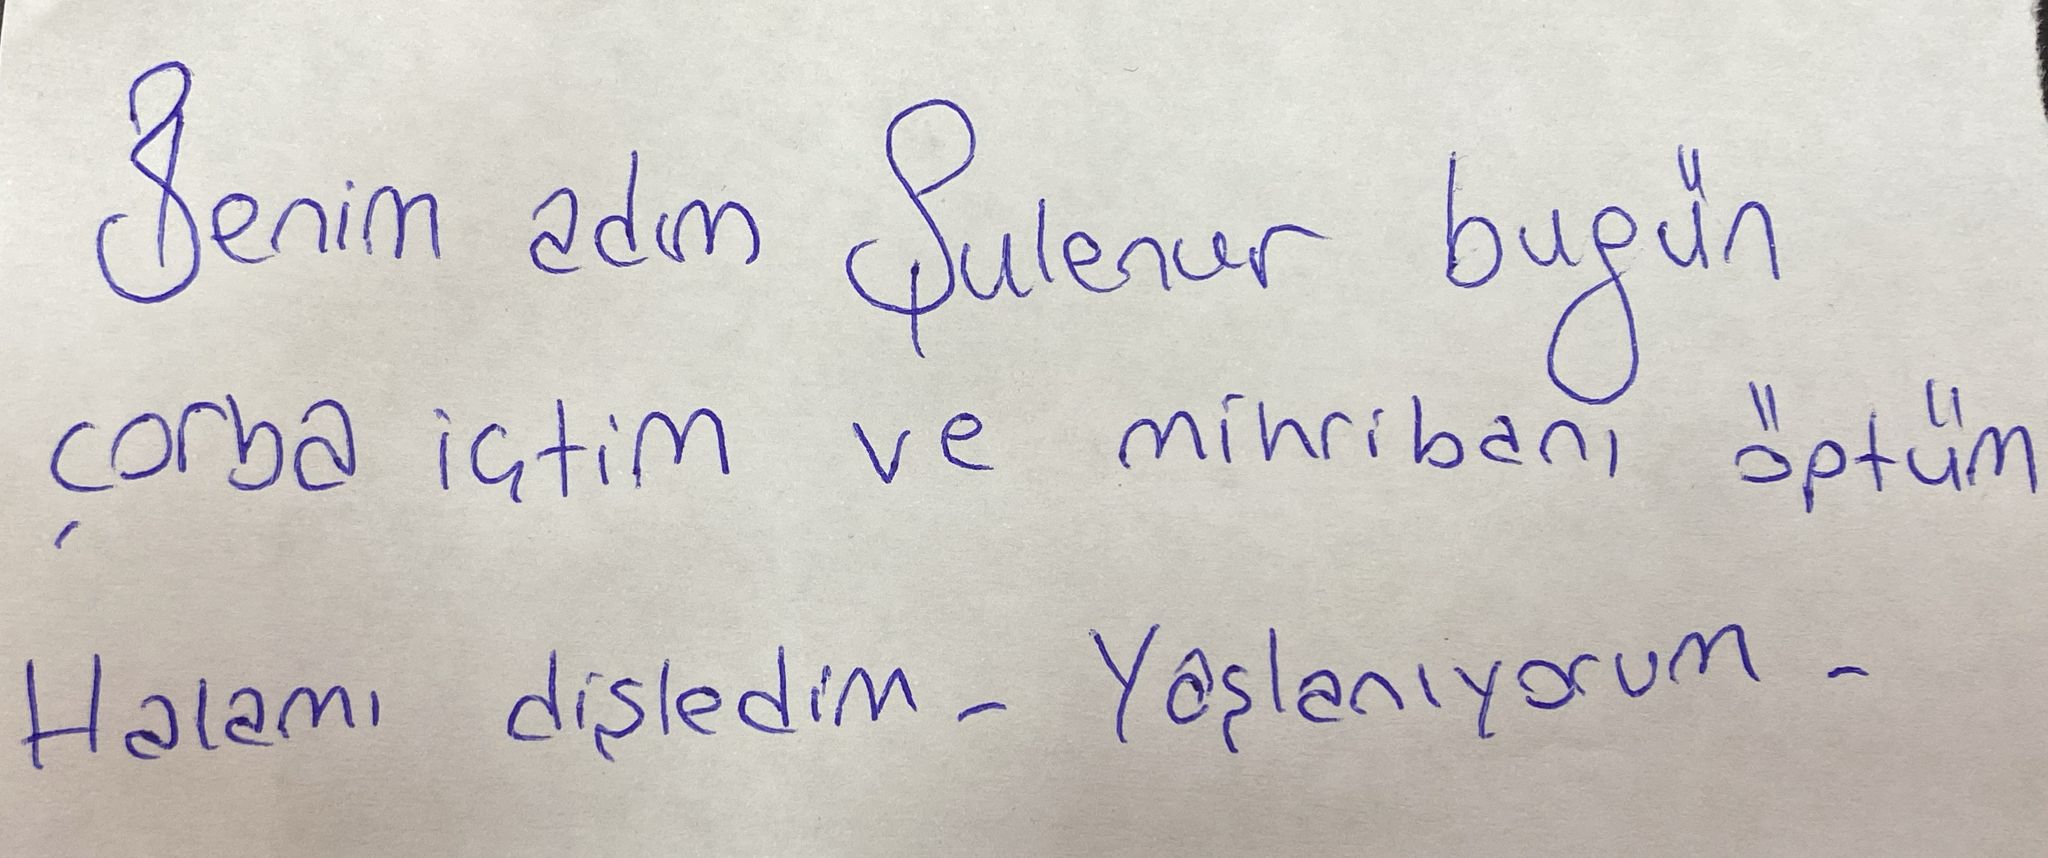 Benim adım Şulenur bugün
çorba içtim ve mihribanı öptüm
Halamı dişledim - Yaşlanıyorum -